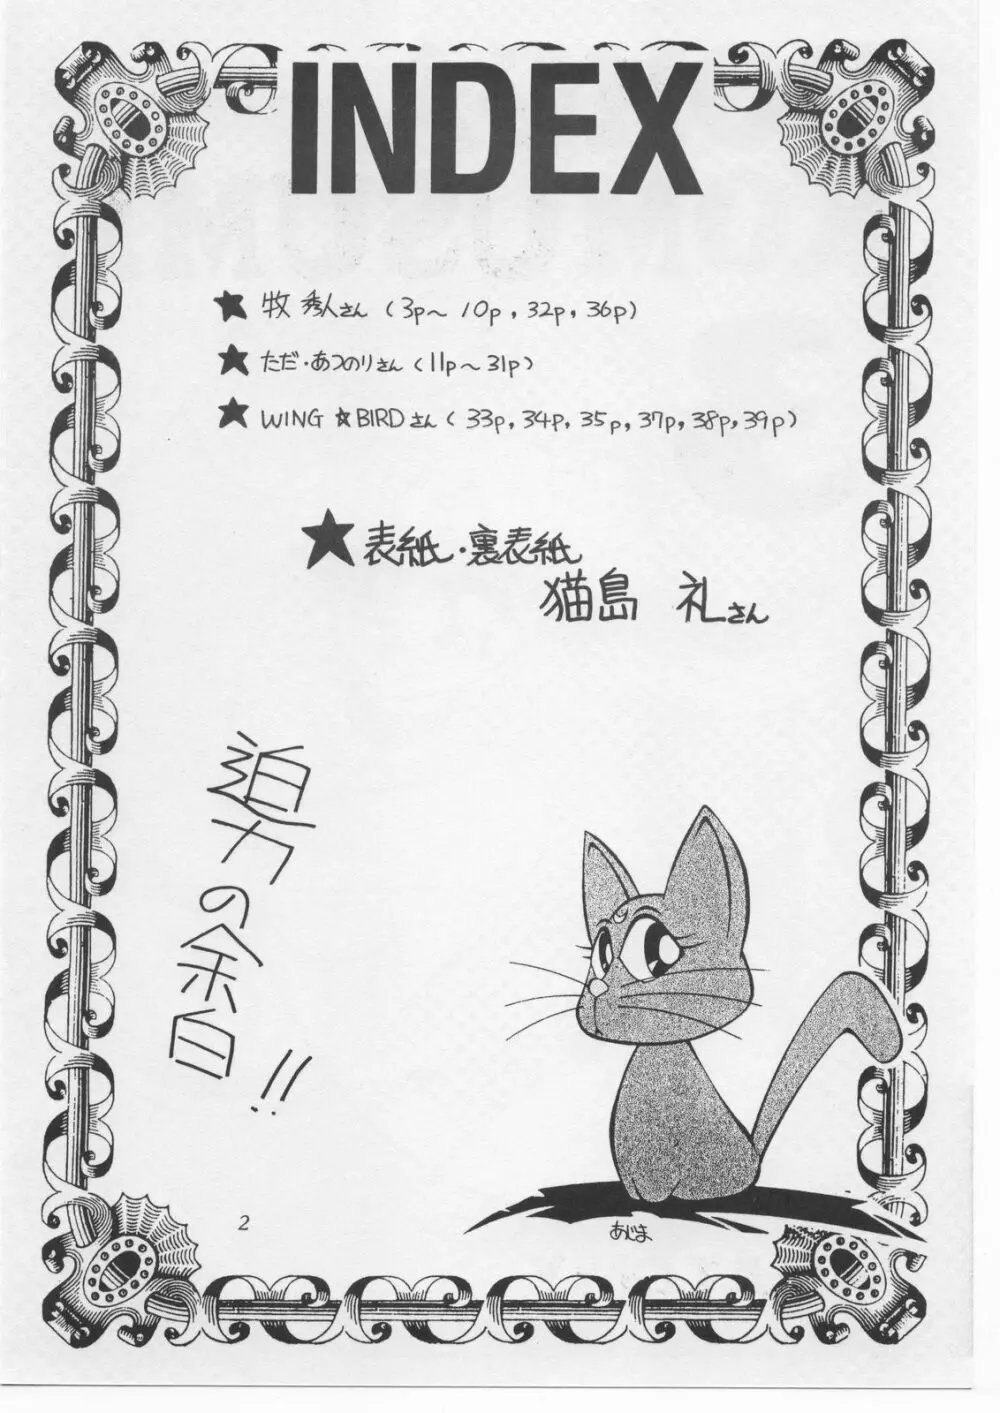 INDEX
★ 牧 秀人さん (3p～10p, 32p, 36p)
★ ただ・あつのりさん (11p～31p)
★ WING ☆ BIRD さん (33p, 34p, 35p, 37p, 38p, 39p)
★ 表紙・裏表紙
猫島 礼さん
迫力の余白!!
あじま
2